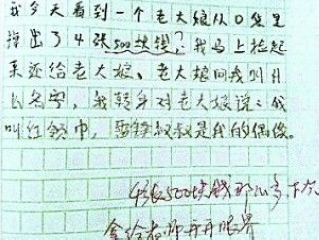 我今天看到一个老大娘从口袋里
掉出了4张500块钱，我马上捡起
来还给老大娘、老大娘问我叫什
么名字，我转身对老大娘说：我
叫红领巾，雷锋叔叔是我的偶像。
4张500块钱那么多，下次
拿给老师开开眼界